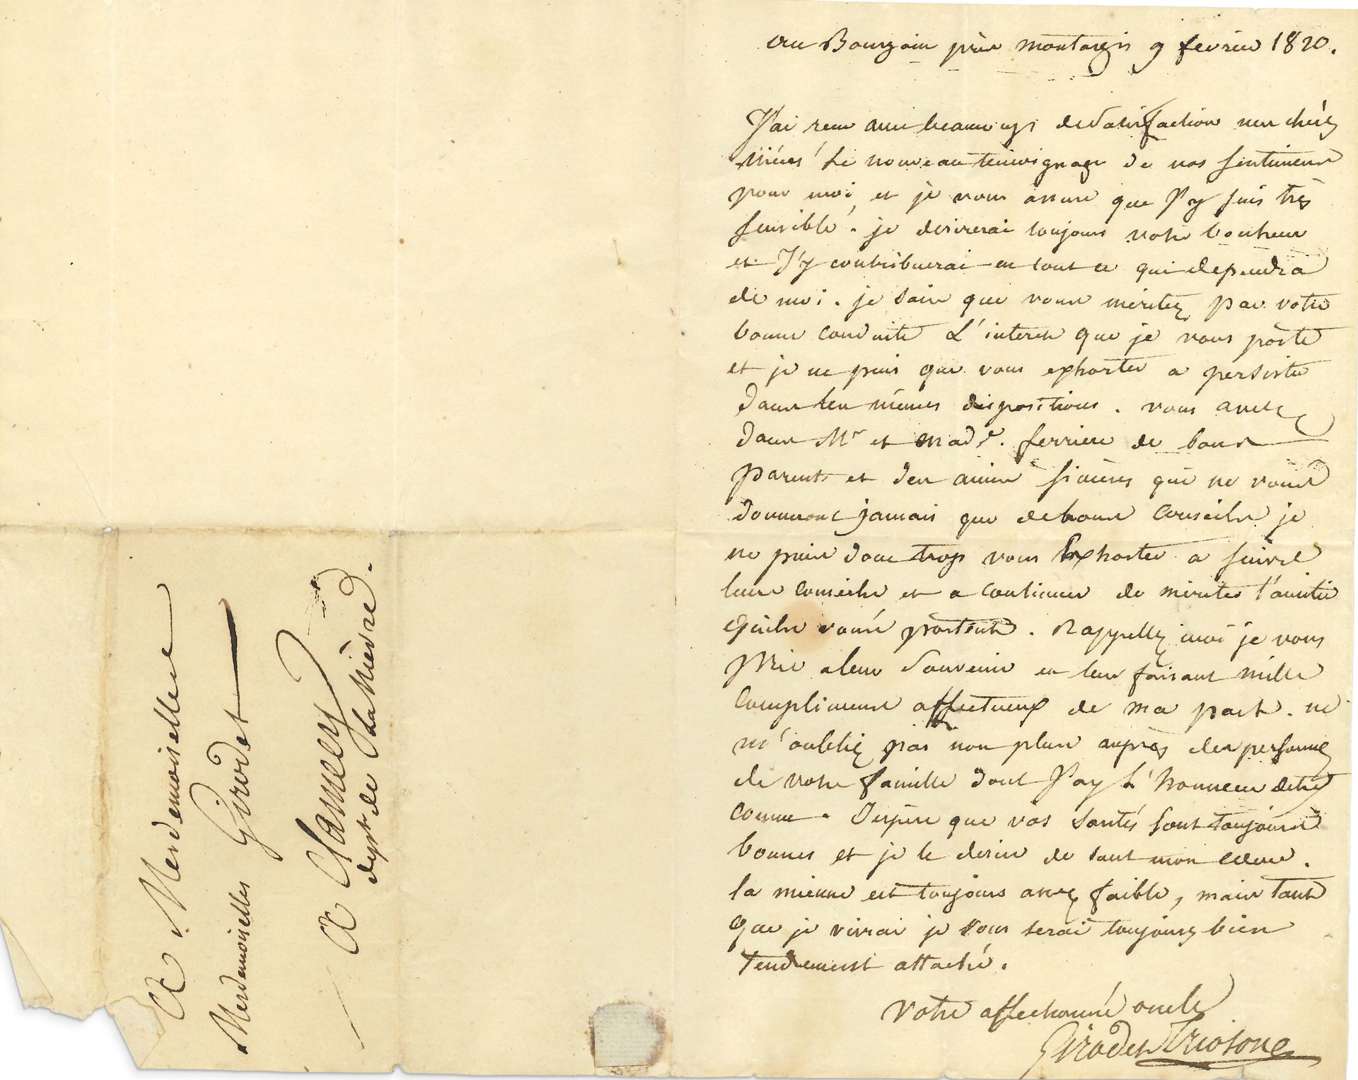 au Bourgoin près montargis 9 fevrier 1820.
J'ai reçu avec beaucoup de Satisfaction mes chères
nièces le nouveau temoignage de vos sentimens
pour moi, et je vous assure que j'y suis très
sensible. je desirerai toujours votre bonheur
et j'y contribuerai en tout ce qui dependra
de moi. je sais que vous méritez par votre
bonne conduite L'interet que je vous porte
et je ne puis que vous exhorter a persister
dans les mêmes dispositions. vous avez
dans Mr et made. ferriere de bons
parents et des amis sincères qui ne vous
donneront jamais que de bons Conseils je
ne puis donc trop vous Exhorter a suivre
leurs conseils et a continuer de meriter l'amitié
qu'ils vous portent. Rappellez moi je vous
prie a leur Souvenir en leur faisant mille
complimens affectueux de ma part. ne
m'oubliez pas non plus auprès des personnes
de votre famille dont j'ay L'honneur detre
connu. J'espere que vos Santés sont toujours
bonnes et je le desire de tout mon coeur.
la mienne est toujours assez faible, mais tant
que je vivrai je vous serai toujours bien
tendrement attaché.
Votre affectionné oncle
Girodet Trioson
A Mesdemoiselles
Mesdemoiselles Girodet
A Clamecy
dept. de la Nièvre.